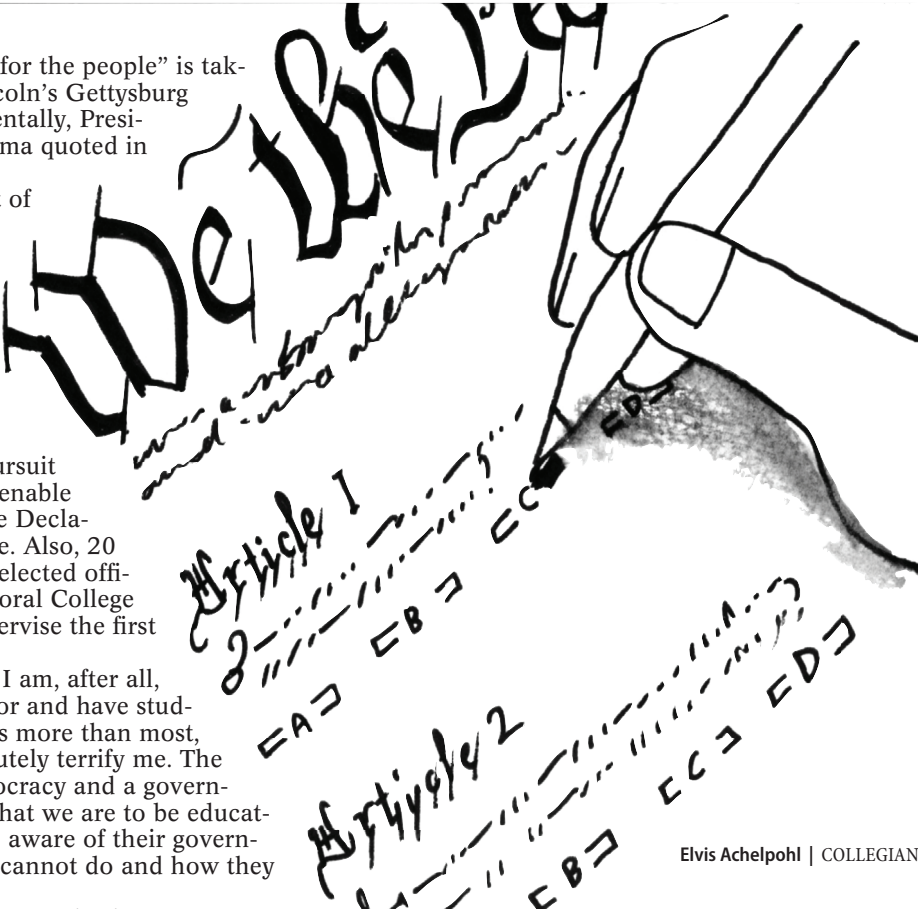 for the people” is tak-
coln’s Gettysburg
entally, Presi-
ma quoted in
of
We the Peo
ursuit
enable
e Decla-
e. Also, 20
elected offi-
oral College
ervise the first
I am, after all,
or and have stud-
s more than most,
utely terrify me. The
ocracy and a govern-
hat we are to be educat-
aware of their govern-
cannot do and how they
Article 1
[A] [B] [C] [D]
Article 2
[B] [C] [D]
Elvis Achelpohl | COLLEGIAN